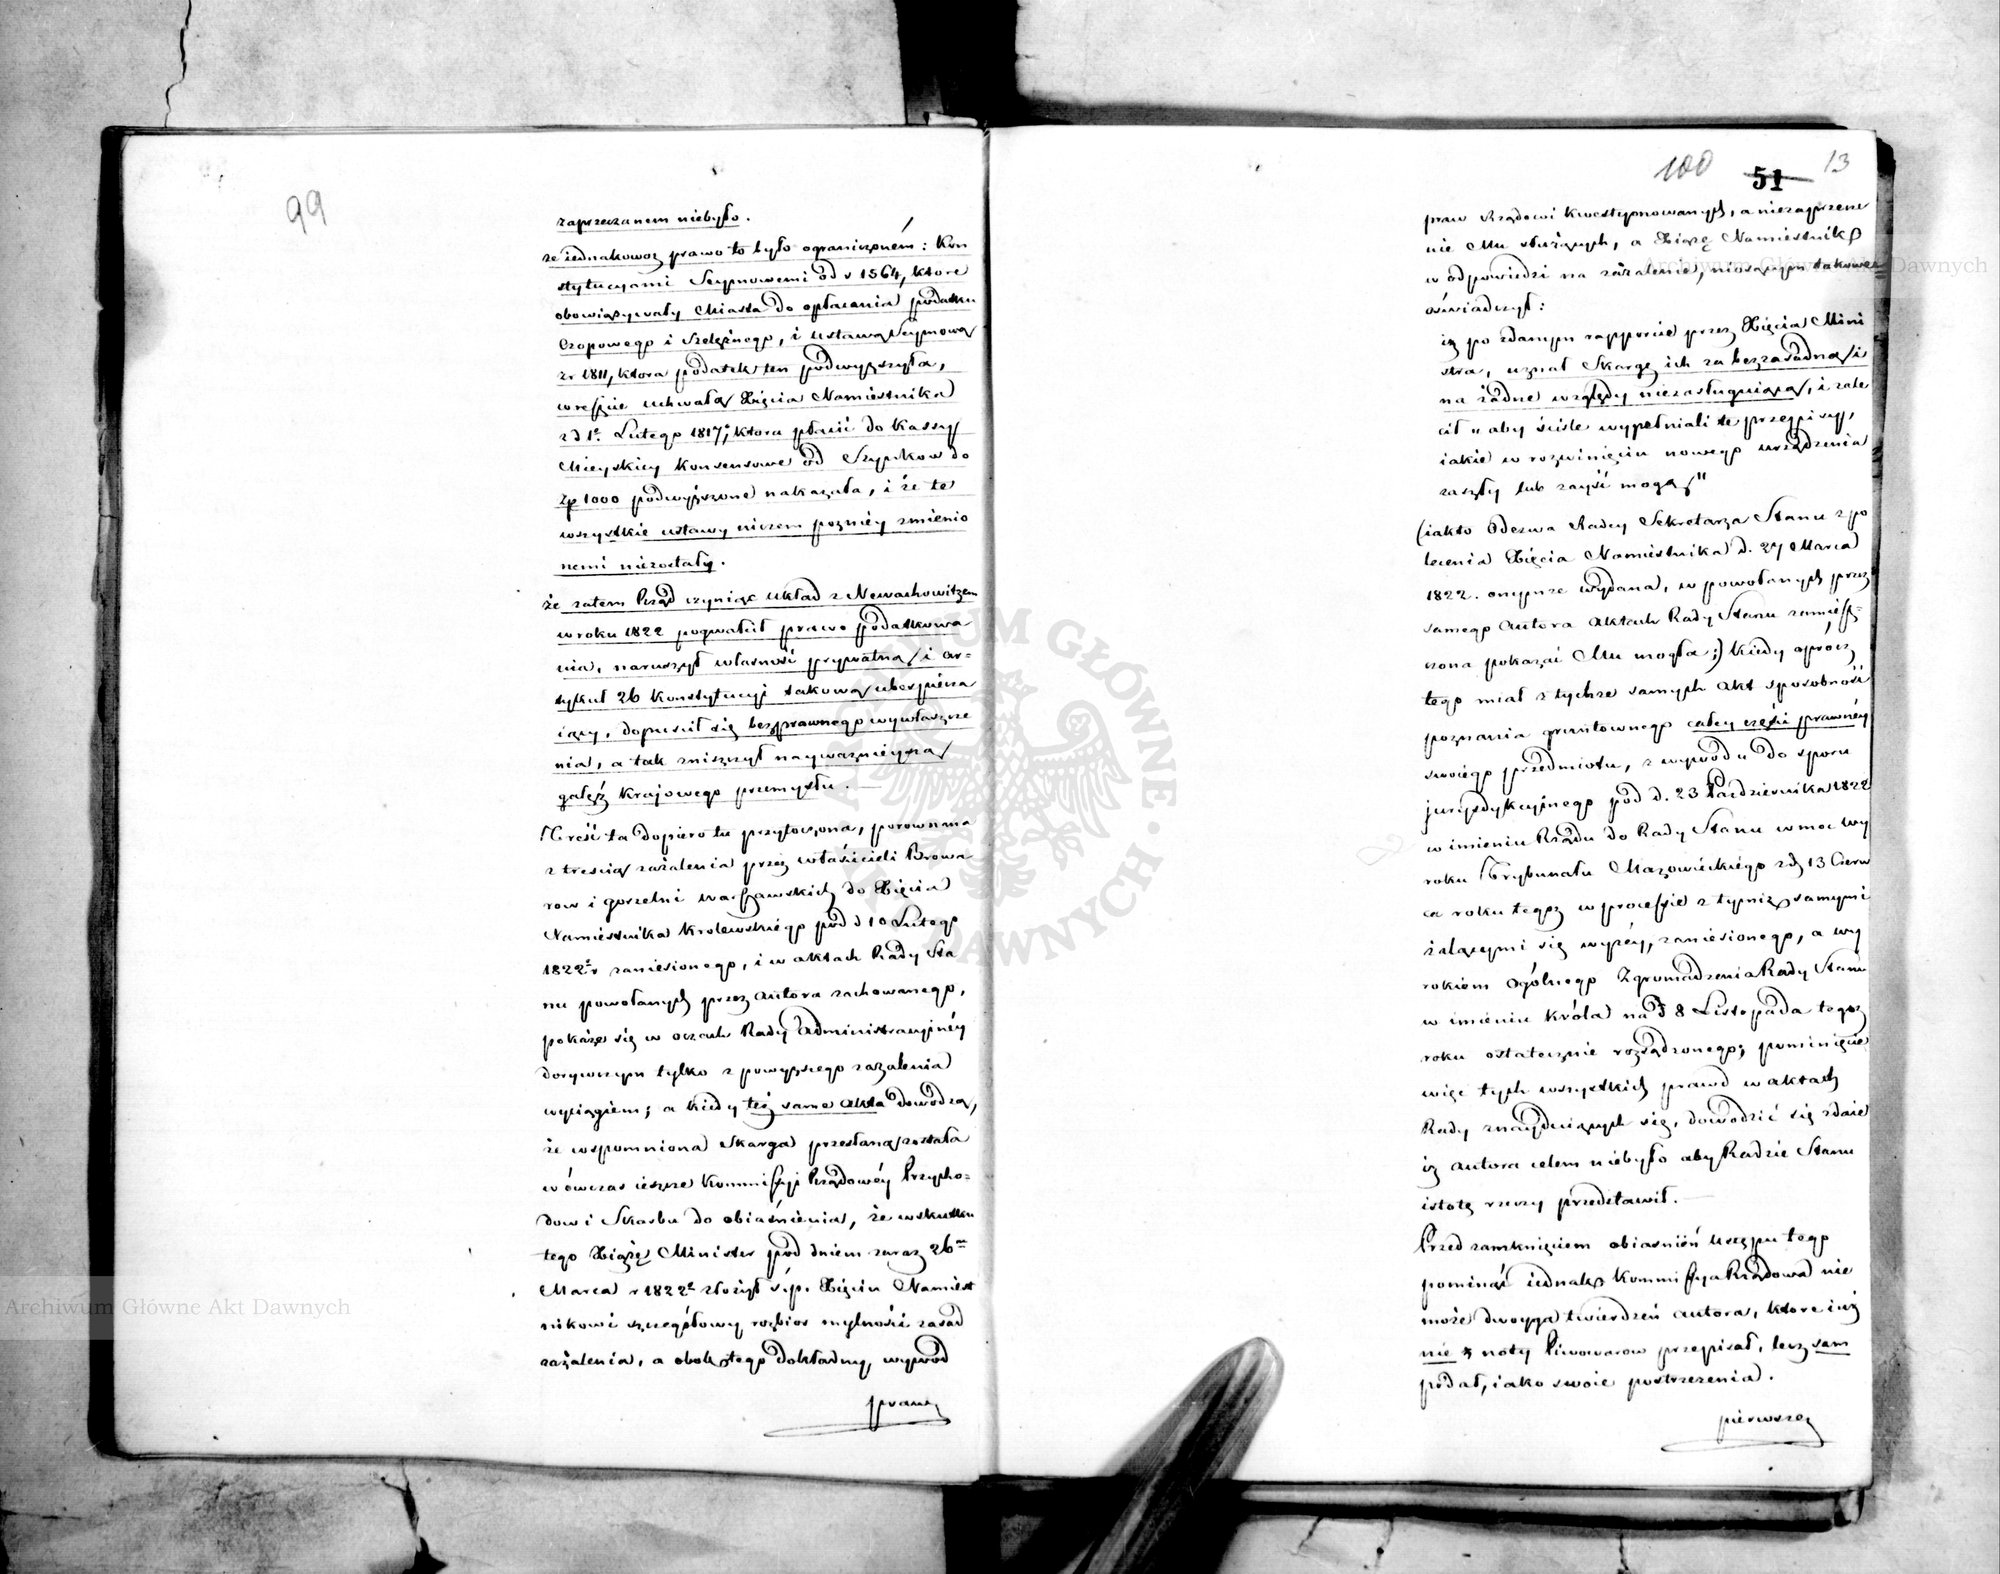 99
zaprzeczanem niebyło.
że iednakowoż prawo to było ograniczoném: Kon
stytucyami Seymowemi od r 1564, ktore
obowiązywały Miasta do opłacania podatku
Czopowego i Szelężnego, i ustawą Seymową
z r 1811, ktora podatek ten podwyższyła,
wreszcie uchwałą Xięcia Namiestnika
z d 1o. Lutego 1817, ktora płacić do Kassy
Mieyskiey konsensowe od Szynkow do
Zp 1000 podwyższone nakazała, i że te
wszystkie ustawy niczem pozniéy zmienio
nemi niezostały.
że zatem Rząd czyniąc układ z Newachowitzem
w roku 1822 pogwałcił prawo podatkowa
nia, naruszył własność prywatną i ar=
tykuł 26 Konstytucyi takową ubezpiecza
iący, dopuścił się bezprawnego wywłaszcze
nia, a tak zniszczył naywaznieyszą
gałęź Krajowego przemysłu.
Treść ta dopiero tu przytoczona, porownana
z treścią zażalenia przez właścicieli Browa
row i gorzelni warszawskich do Xięcia
Namiestnika Krolewskiégo pod d 10 Lutego
1822 r zaniesionego, i w aktach Rady Sta
nu powołanych przez autora zachowanego,
pokaże się w oczach Rady Administracyjnéy
dorywczym tylko z powyższego zażalenia
wyciągiem; a kiedy też same akta dowodzą,
że wspomniona Skarga przesłaną została
w ówczas ieszcze Kommissyi Rządowéy Przycho=
dow i Skarbu do obiaśnienia, że wskutku
tego Xiążę Minister pod dniem zaraz 26m
Marca r 1822 złożył ś.p. Xięciu Namiest
nikowi szczegółowy rozbior mylności zasad
zażalenia, a obok tego dokładny wywod
praw
100 51 13
praw Rządowi kwestyonowanych, a niezaprzecze
nie Mu służących, a Xiążę Namiestnik
w odpowiedzi na zażalenie, niosącym takowe
oświadczył:
iż po zdanym rapporcie przez Xięcia Mini
stra, uznał Skargę ich za bezzasadną i
na żadne względy niezasługuiącą, i zale
cił „aby ściśle wypełniali te przepisy,
iakie w rozwinięciu nowego urządzenia
zaszły lub zayść mogą"
(iak to Odezwa Radcy Sekretarza Stanu z po
lecenia Xięcia Namiestnika d. 27 Marca
1822. wydana, w powołanych przez
samego autora aktach Rady Stanu zamiesz=
czona pokazać Mu mogła;) kiedy oprócz
tego miał z tychże samych akt sposobność
poznania gruntownego całey części prawnéy
swoiégo przedmiotu, z wywodu do sporu
jurysdykcyjnego pod d. 23 Pazdziernika 1822
w imieniu Rządu do Rady Stanu w moc wy
roku Trybunału Mazowieckiégo z d 13 Czerw
ca roku tegoż w processie z tymiż samymi
żalącymi się wyżéy, zaniesionego, a wy
rokiem Ogólnego Zgromadzenia Rady Stanu
w imieniu Króla na d 8 Listopada tegoż
roku ostatecznie rozsądzonego; pominięcie
więc tych wszystkich prawd w aktach
Rady znayduiących się, dowodzić się zdaie
iż autora celem niebyło aby Radzie Stanu
istotę rzeczy przedstawił.
Przed zamknięciem obiasnień ustępu tego
pominąć iednak Kommissya Rządowa nie
może dwoyga twierdzeń autora, ktore iuż
nie z noty Piwowarow przepisał, lecz sam
podał, iako swoie postrzeżenia.
pierwsze
Archiwum Główne Akt Dawnych
Archiwum Główne Akt Dawnych
ARCHIWUM GŁÓWNE AKT DAWNYCH